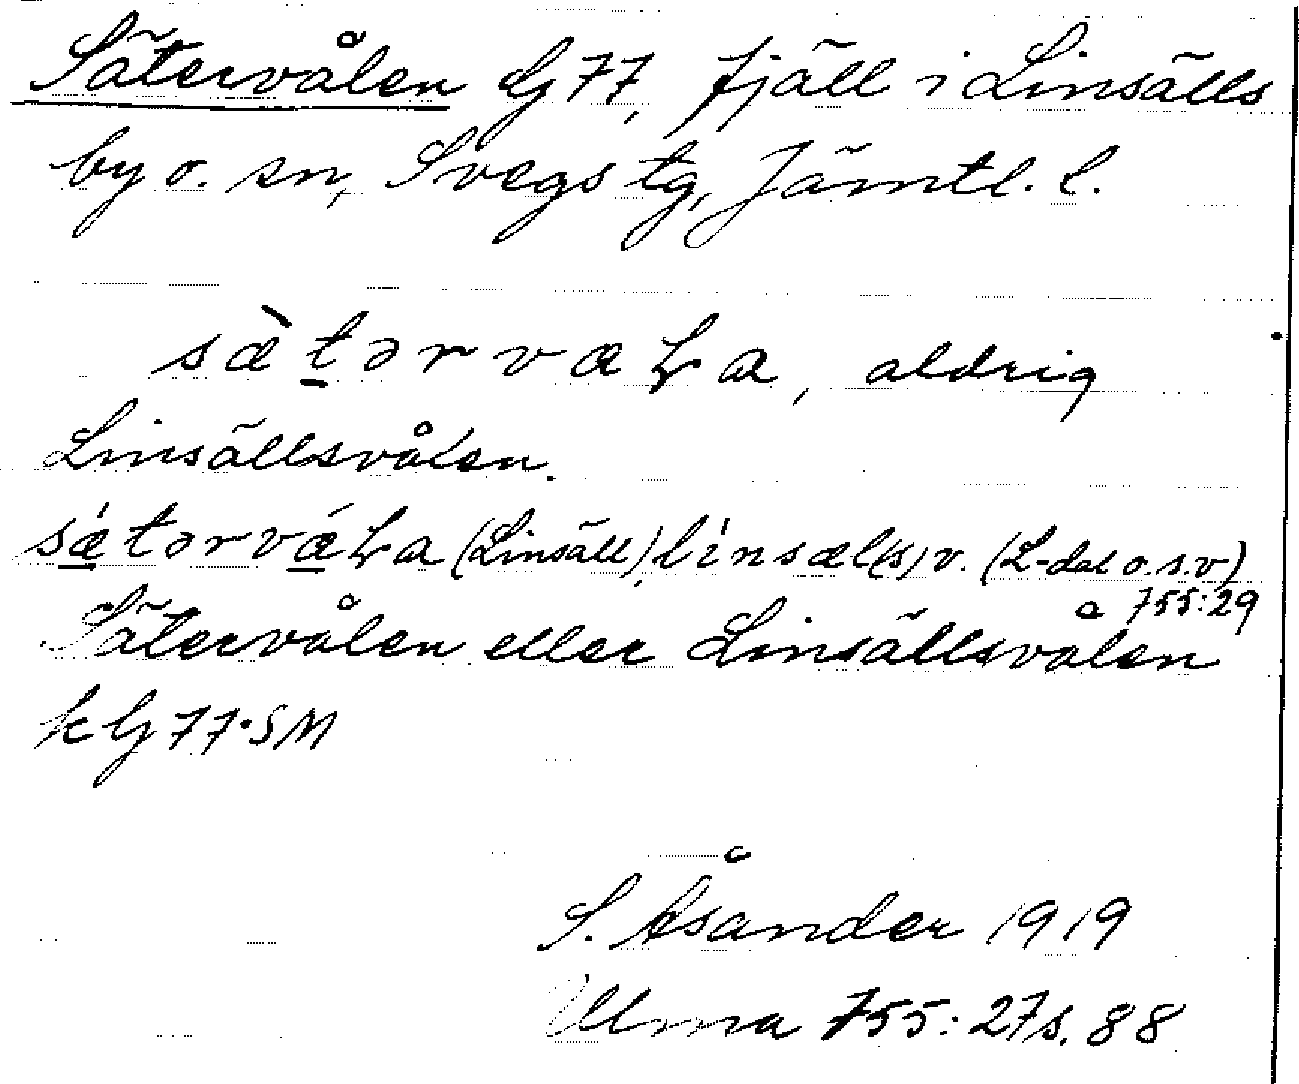 Sätervålen Gj 77, fjäll i Linsälls
by o. sn, Svegs tg, Jämtl. l.
sæ̀tərvæLa, aldrig
Linsällsvålen.
sǽtərvǽLa (Linsäll), línsæl(s)v. (L-dal o.s.v)
755:29
Sätervålen eller Linsällsvålen
k Gj 77·SM
S. Åsander 1919
Ulma 755:27 s. 88